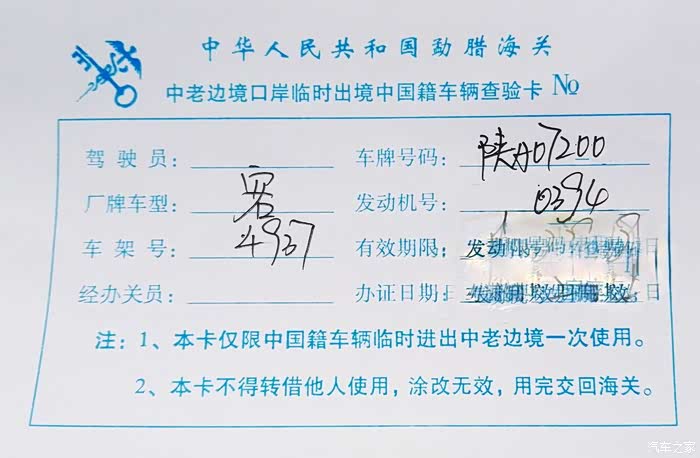 中华人民共和国勐腊海关
中老边境口岸临时出境中国籍车辆查验卡 №
驾驶员: 车牌号码: 陕A07200
厂牌车型: 客 发动机号: 0394
车架号: 4937 有效期限:
经办关员: 办证日期:
注: 1、本卡仅限中国籍车辆临时进出中老边境一次使用。
2、本卡不得转借他人使用，涂改无效，用完交回海关。
汽车之家